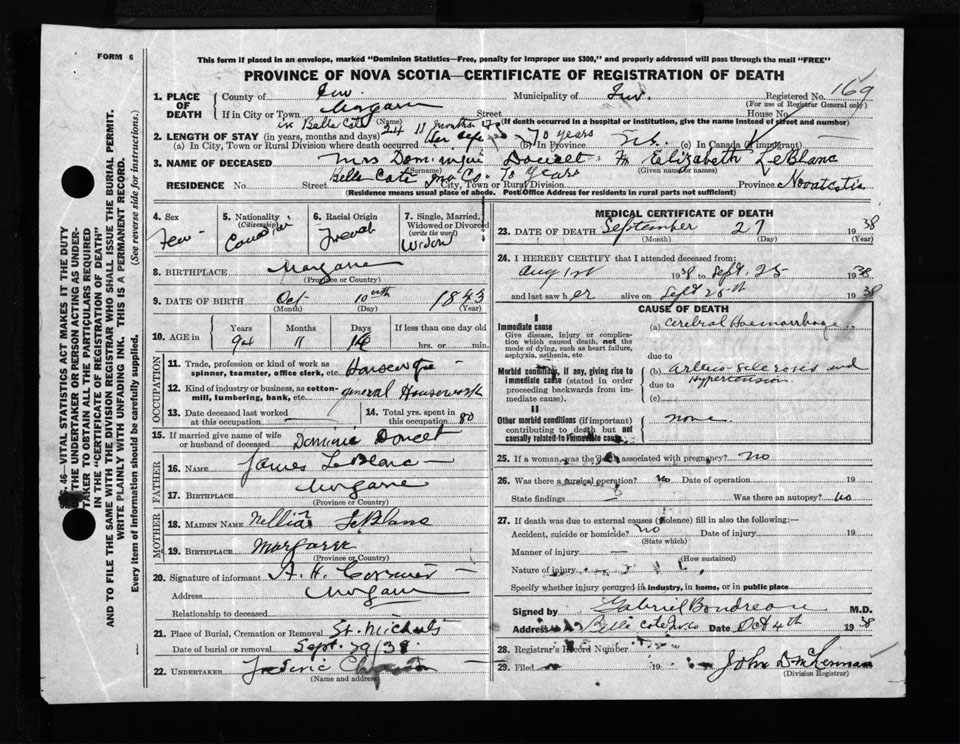 FORM 6
This form if placed in an envelope, marked "Dominion Statistics—Free, penalty for improper use $300," and properly addressed will pass through the mail "FREE"
PROVINCE OF NOVA SCOTIA—CERTIFICATE OF REGISTRATION OF DEATH
1. PLACE OF DEATH
County of Inv. Municipality of Inv. Registered No. 169
(For use of Registrar General only)
If in City or Town Street House No.
(Name) (If death occurred in a hospital or institution, give the name instead of street and number)
Belle Cote 24 11 months
2. LENGTH OF STAY (in years, months and days)
(a) In City, Town or Rural Division where death occurred 70 years (c) In Canada (if immigrant)
3. NAME OF DECEASED Mrs Dominique Doucet Elizabeth LeBlanc
(Surname) (Given name or names)
Belle Cote Inv Co. 70 years
RESIDENCE No. Street City, Town or Rural Division Province Novascotia
(Residence means usual place of abode. Post Office Address for residents in rural parts not sufficient)
4. Sex Fem
5. Nationality (Citizenship)
6. Racial Origin French
7. Single, Married, Widowed or Divorced (write the word) Widow
8. BIRTHPLACE Margaree
(Province or Country)
9. DATE OF BIRTH Oct 10 1843
(Month) (Day) (Year)
10. AGE in Years Months Days If less than one day old
94 11 hrs. or min.
OCCUPATION
11. Trade, profession or kind of work as spinner, teamster, office clerk, etc. Housewife
12. Kind of industry or business, as cotton-mill, lumbering, bank, etc. general Housework
13. Date deceased last worked at this occupation
14. Total yrs. spent in this occupation 80
15. If married give name of wife or husband of deceased Dominic Doucet
FATHER
16. NAME James LeBlanc
17. BIRTHPLACE Margaree
(Province or Country)
MOTHER
18. MAIDEN NAME LeBlanc
19. BIRTHPLACE Margaree
(Province or Country)
20. Signature of informant A. H. Cormier
Address Margaree
Relationship to deceased
21. Place of Burial, Cremation or Removal St. Michaels
Date of burial or removal Sept. 29/38
22. UNDERTAKER Frederic
(Name and address)
MEDICAL CERTIFICATE OF DEATH
23. DATE OF DEATH September 27 1938
(Month) (Day) (Year)
24. I HEREBY CERTIFY that I attended deceased from:
Aug 1st 1938 to Sept. 25 1938
and last saw her alive on Sept 25th 1938
CAUSE OF DEATH
I
Immediate cause (a) Cerebral Haemorrhage
Give disease, injury or complication which caused death, not the mode of dying, such as heart failure, asphyxia, asthenia, etc
due to
Morbid conditions, if any, giving rise to immediate cause (stated in order proceeding backwards from immediate cause).
(b) Arterio-Sclerosis and Hypertension
due to
(c)
II
Other morbid conditions (if important) contributing to death but not causally related to immediate cause. none
25. If a woman, was the death associated with pregnancy? no
26. Was there a surgical operation? No Date of operation 19
State findings Was there an autopsy? No
27. If death was due to external causes (violence) fill in also the following:—
Accident, suicide or homicide? no Date of injury 19
(State which)
Manner of injury —
(How sustained)
Nature of injury
Specify whether injury occurred in industry, in home, or in public place
Signed by Gabriel Boudreau M.D.
Address Belle Cote Date Oct 4th 1938
28. Registrar's Record Number
29. Filed 19 John D McLennan
(Division Registrar)
46—VITAL STATISTICS ACT MAKES IT THE DUTY
THE UNDERTAKER OR PERSON ACTING AS UNDERTAKER TO OBTAIN ALL THE PARTICULARS REQUIRED
IN THE "CERTIFICATE OF REGISTRATION OF DEATH"
AND TO FILE THE SAME WITH THE DIVISION REGISTRAR WHO SHALL ISSUE THE BURIAL PERMIT.
WRITE PLAINLY WITH UNFADING INK. THIS IS A PERMANENT RECORD.
Every item of information should be carefully supplied. (See reverse side for instructions.)